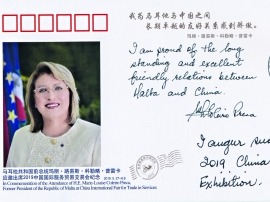 我为马耳他与中国之间
长期卓越的友好关系感到骄傲。
玛丽·路易斯·科勒略·普雷卡
I am proud of the long
standing and excellent
friendly relations between
Malta and China.
2019 China
Exhibition.
马耳他共和国前总统玛丽·路易斯·科勒略·普雷卡
应邀出席2019中国国际服务贸易交易会纪念
In Commemoration of the Attendance of H.E. Marie Louise Coleiro Preca,
Former President of the Republic of Malta at China International Fair for Trade in Services